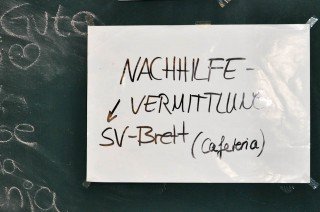 Gute
NACHHILFE-
VERMITTLUNG
SV-Brett (Cafeteria)